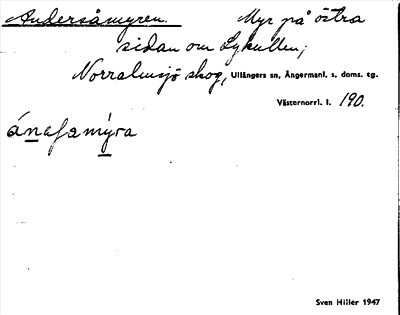 Andersåmyren. Myr på östra
sidan om Lykullen,
Norralunsjö skog, Ullångers sn, Ångermanl. s. doms. tg.
Västernorrl. l. 190.
ánasamýra
Sven Hiller 1947